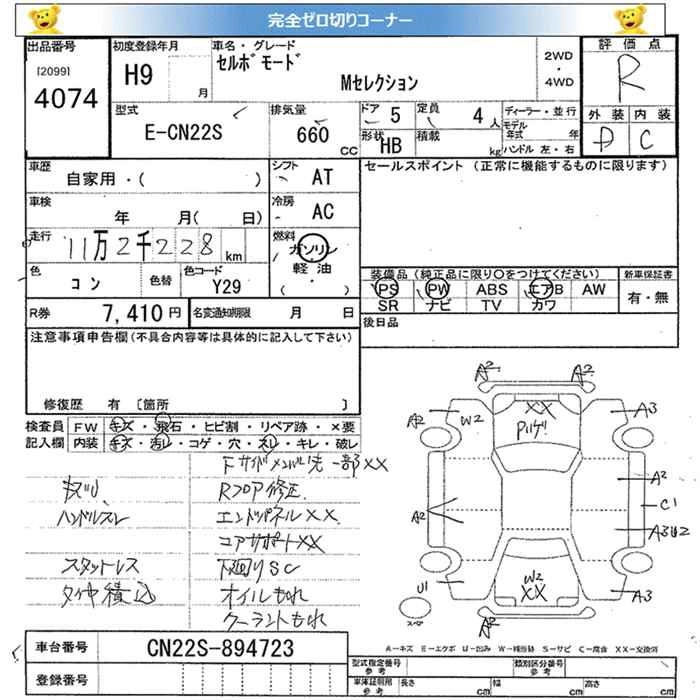 完全ゼロ切りコーナー
出品番号
[2099]
4074
初度登録年月
H9
月
車名・グレード
セルボモード
Mセレクション
2WD
・
4WD
評価点
R
外装 内装
D C
型式
E-CN22S
排気量
660
CC
ドア 5
定員 4 人
形状 HB
積載 kg
ディーラー・並行
モデル年式 年
ハンドル 左・右
車歴
自家用・( )
シフト
AT
セールスポイント (正常に機能するものに限ります)
車検
年 月( 日)
冷房
AC
走行
11万2千228 km
燃料
ガソリン
軽油
( ・ )
色
コン
色替
色コード
Y29
装備品(純正品に限り○をつけてください)
PS PW ABS エアB AW
SR ナビ TV カワ
新車保証書
有・無
R券
7,410円
名変通知期限 月 日
後日品
注意事項申告欄(不具合内容等は具体的に記入して下さい)
修復歴 有 [箇所 ]
検査員記入欄
FW キズ・飛石・ヒビ割・リペア跡・×要
内装 キズ・汚レ・コゲ・穴・スレ・キレ・破レ
Fサイドメンバー先一部××
Rフロア修正
ハンドルスレ
エンドパネル××
コアサポート××
スタットレス
下廻りSC
タイヤ積込
オイルもれ
クーラントもれ
A2 A2
A2 W2 XX A3
A2
A2 C1
A3U2
U1 W2 XX A3
スペア
A2
A-キズ E-エクボ U-凹み W-補修跡 S-サビ C-腐食 XX-交換済
車台番号
CN22S-894723
登録番号
型式指定番号 参考
類別区分番号 参考
車庫証明用 参考
長さ cm 幅 cm 高さ cm